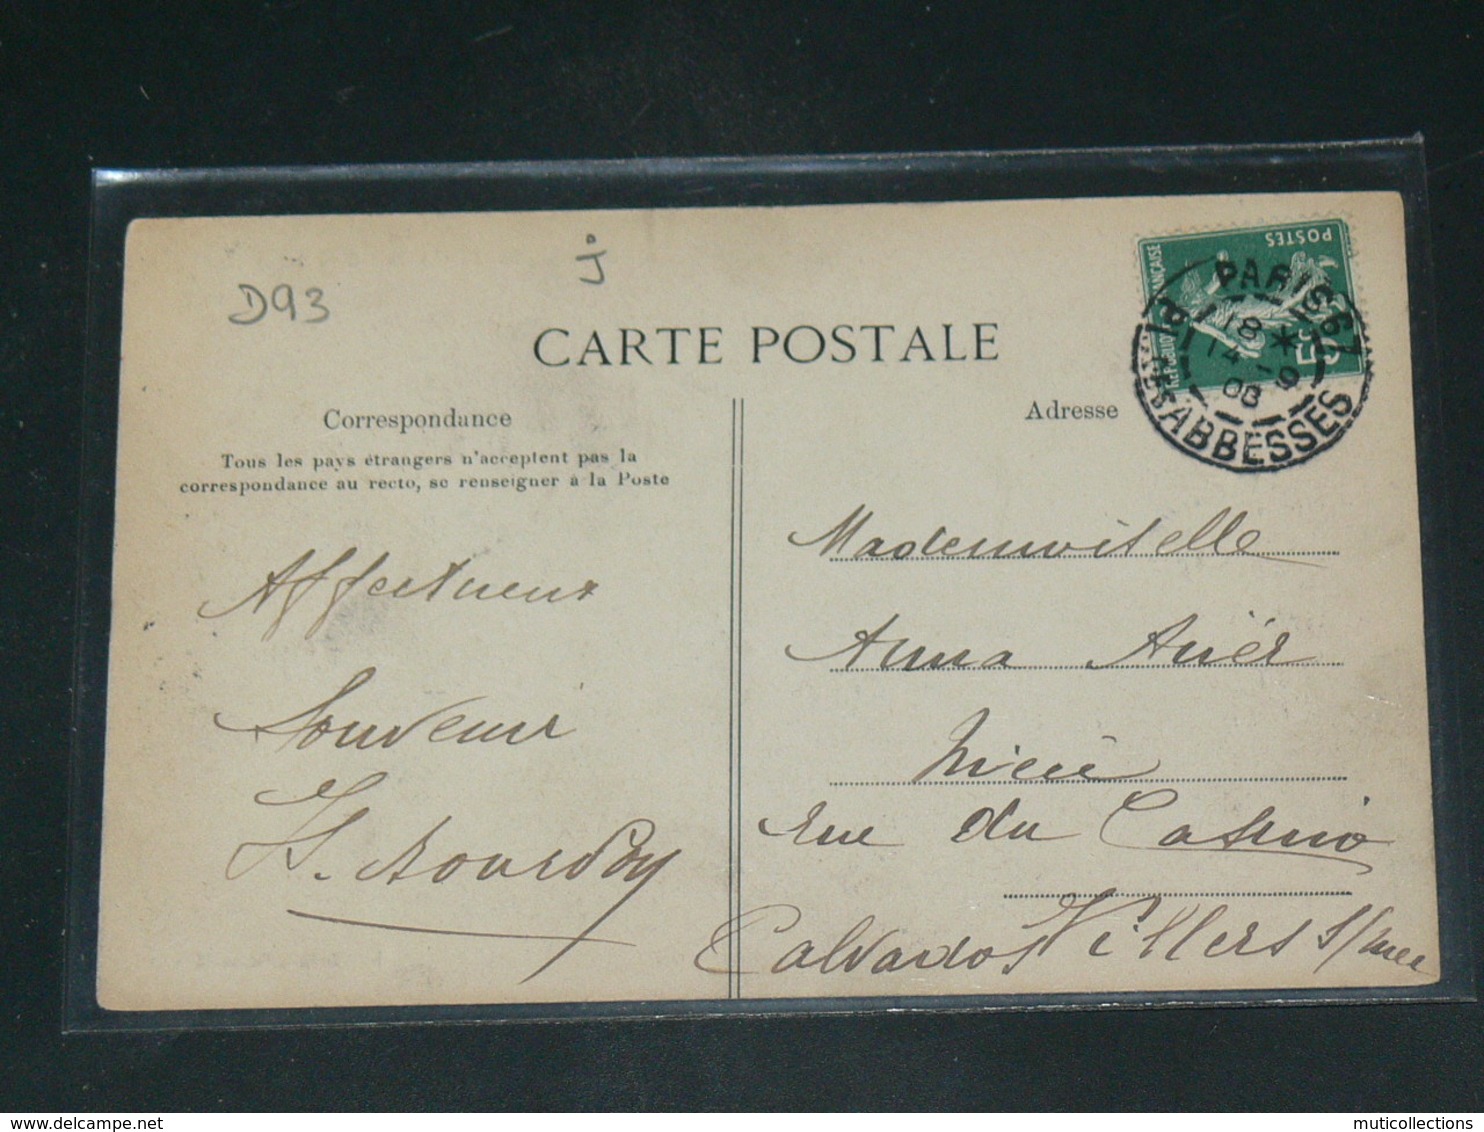 D93
J
CARTE POSTALE
POSTES
PARIS 67
18 *
14 -9
08
Pl. DES ABBESSES
Correspondance
Tous les pays étrangers n'acceptent pas la
correspondance au recto, se renseigner à la Poste
Adresse
Affectueux
Souvenir
Mademoiselle
Anna
rue du Casino
Calvados Villers s/mer
delcampe.net
muticollections